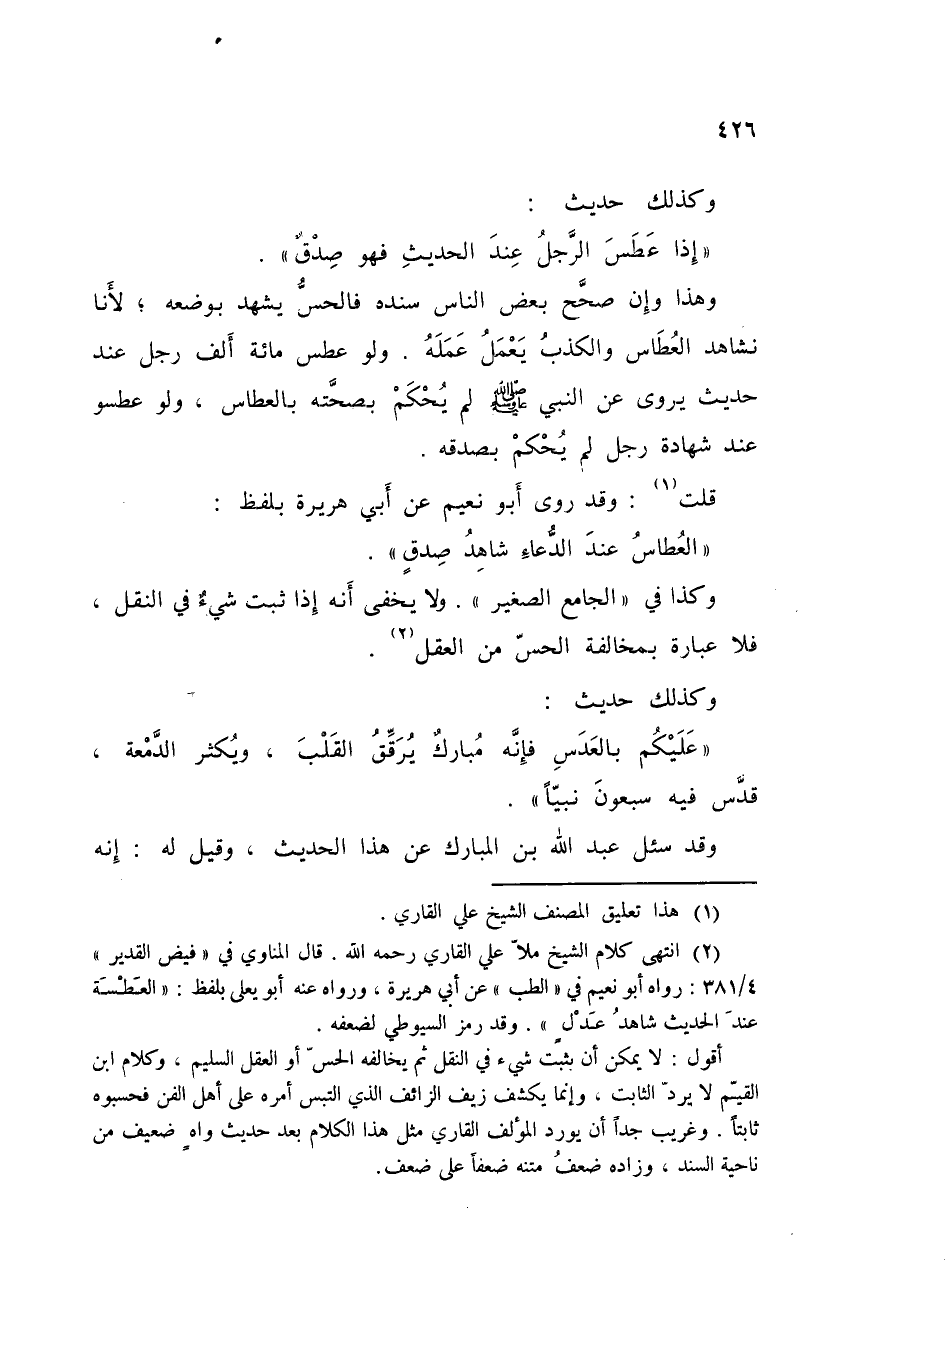 ٤٢٦
وكذلك حديث :
« إذا عَطَسَ الرَّجلُ عِندَ الحديثِ فهو صِدْقٌ » .
وهذا وإن صحَّح بعض الناس سنده فالحسُّ يشهد بوضعه ؛ لأَنا
نشاهد العُطَاس والكذبُ يَعْمَلُ عَمَلَهُ . ولو عطس مائة أَلف رجل عند
حديث يروى عن النبي ﷺ لم يُحْكَمْ بصحَّته بالعطاس ، ولو عطسو
عند شهادة رجل لم يُحْكمْ بصدقه .
قلت(١) : وقد روى أَبو نعيم عن أَبي هريرة بلفظ :
« العُطاسُ عندَ الدُّعاءِ شاهِدُ صِدقٍ » .
وكذا في « الجامع الصغير » . ولا يخفى أَنه إذا ثبت شيءٌ في النقل ،
فلا عبارة بمخالفة الحسّ من العقل(٢) .
وكذلك حديث :
« عَلَيْكُم بالعَدَسِ فإنَّه مُباركٌ يُرَقِّقُ القَلْبَ ، ويُكثر الدَّمْعة ،
قدَّس فيه سبعونَ نبيّاً » .
وقد سئل عبد الله بن المبارك عن هذا الحديث ، وقيل له : إنه
(١) هذا تعليق المصنف الشيخ علي القاري .
(٢) انتهى كلام الشيخ ملاّ علي القاري رحمه الله . قال المناوي في « فيض القدير »
٣٨١/٤ : رواه أبو نعيم في « الطب » عن أبي هريرة ، ورواه عنه أبو يعلى بلفظ : « العَطْسَة
عندَ الحديث شاهدُ عَدْلٍ » . وقد رمز السيوطي لضعفه .
أقول : لا يمكن أن يثبت شيء في النقل ثم يخالفه الحسّ أو العقل السليم ، وكلام ابن
القيّم لا يردّ الثابت ، وإنما يكشف زيف الزائف الذي التبس أمره على أهل الفن فحسبوه
ثابتاً . وغريب جداً أن يورد المؤلف القاري مثل هذا الكلام بعد حديث واهٍ ضعيف من
ناحية السند ، وزاده ضعفُ متنه ضعفاً على ضعف .